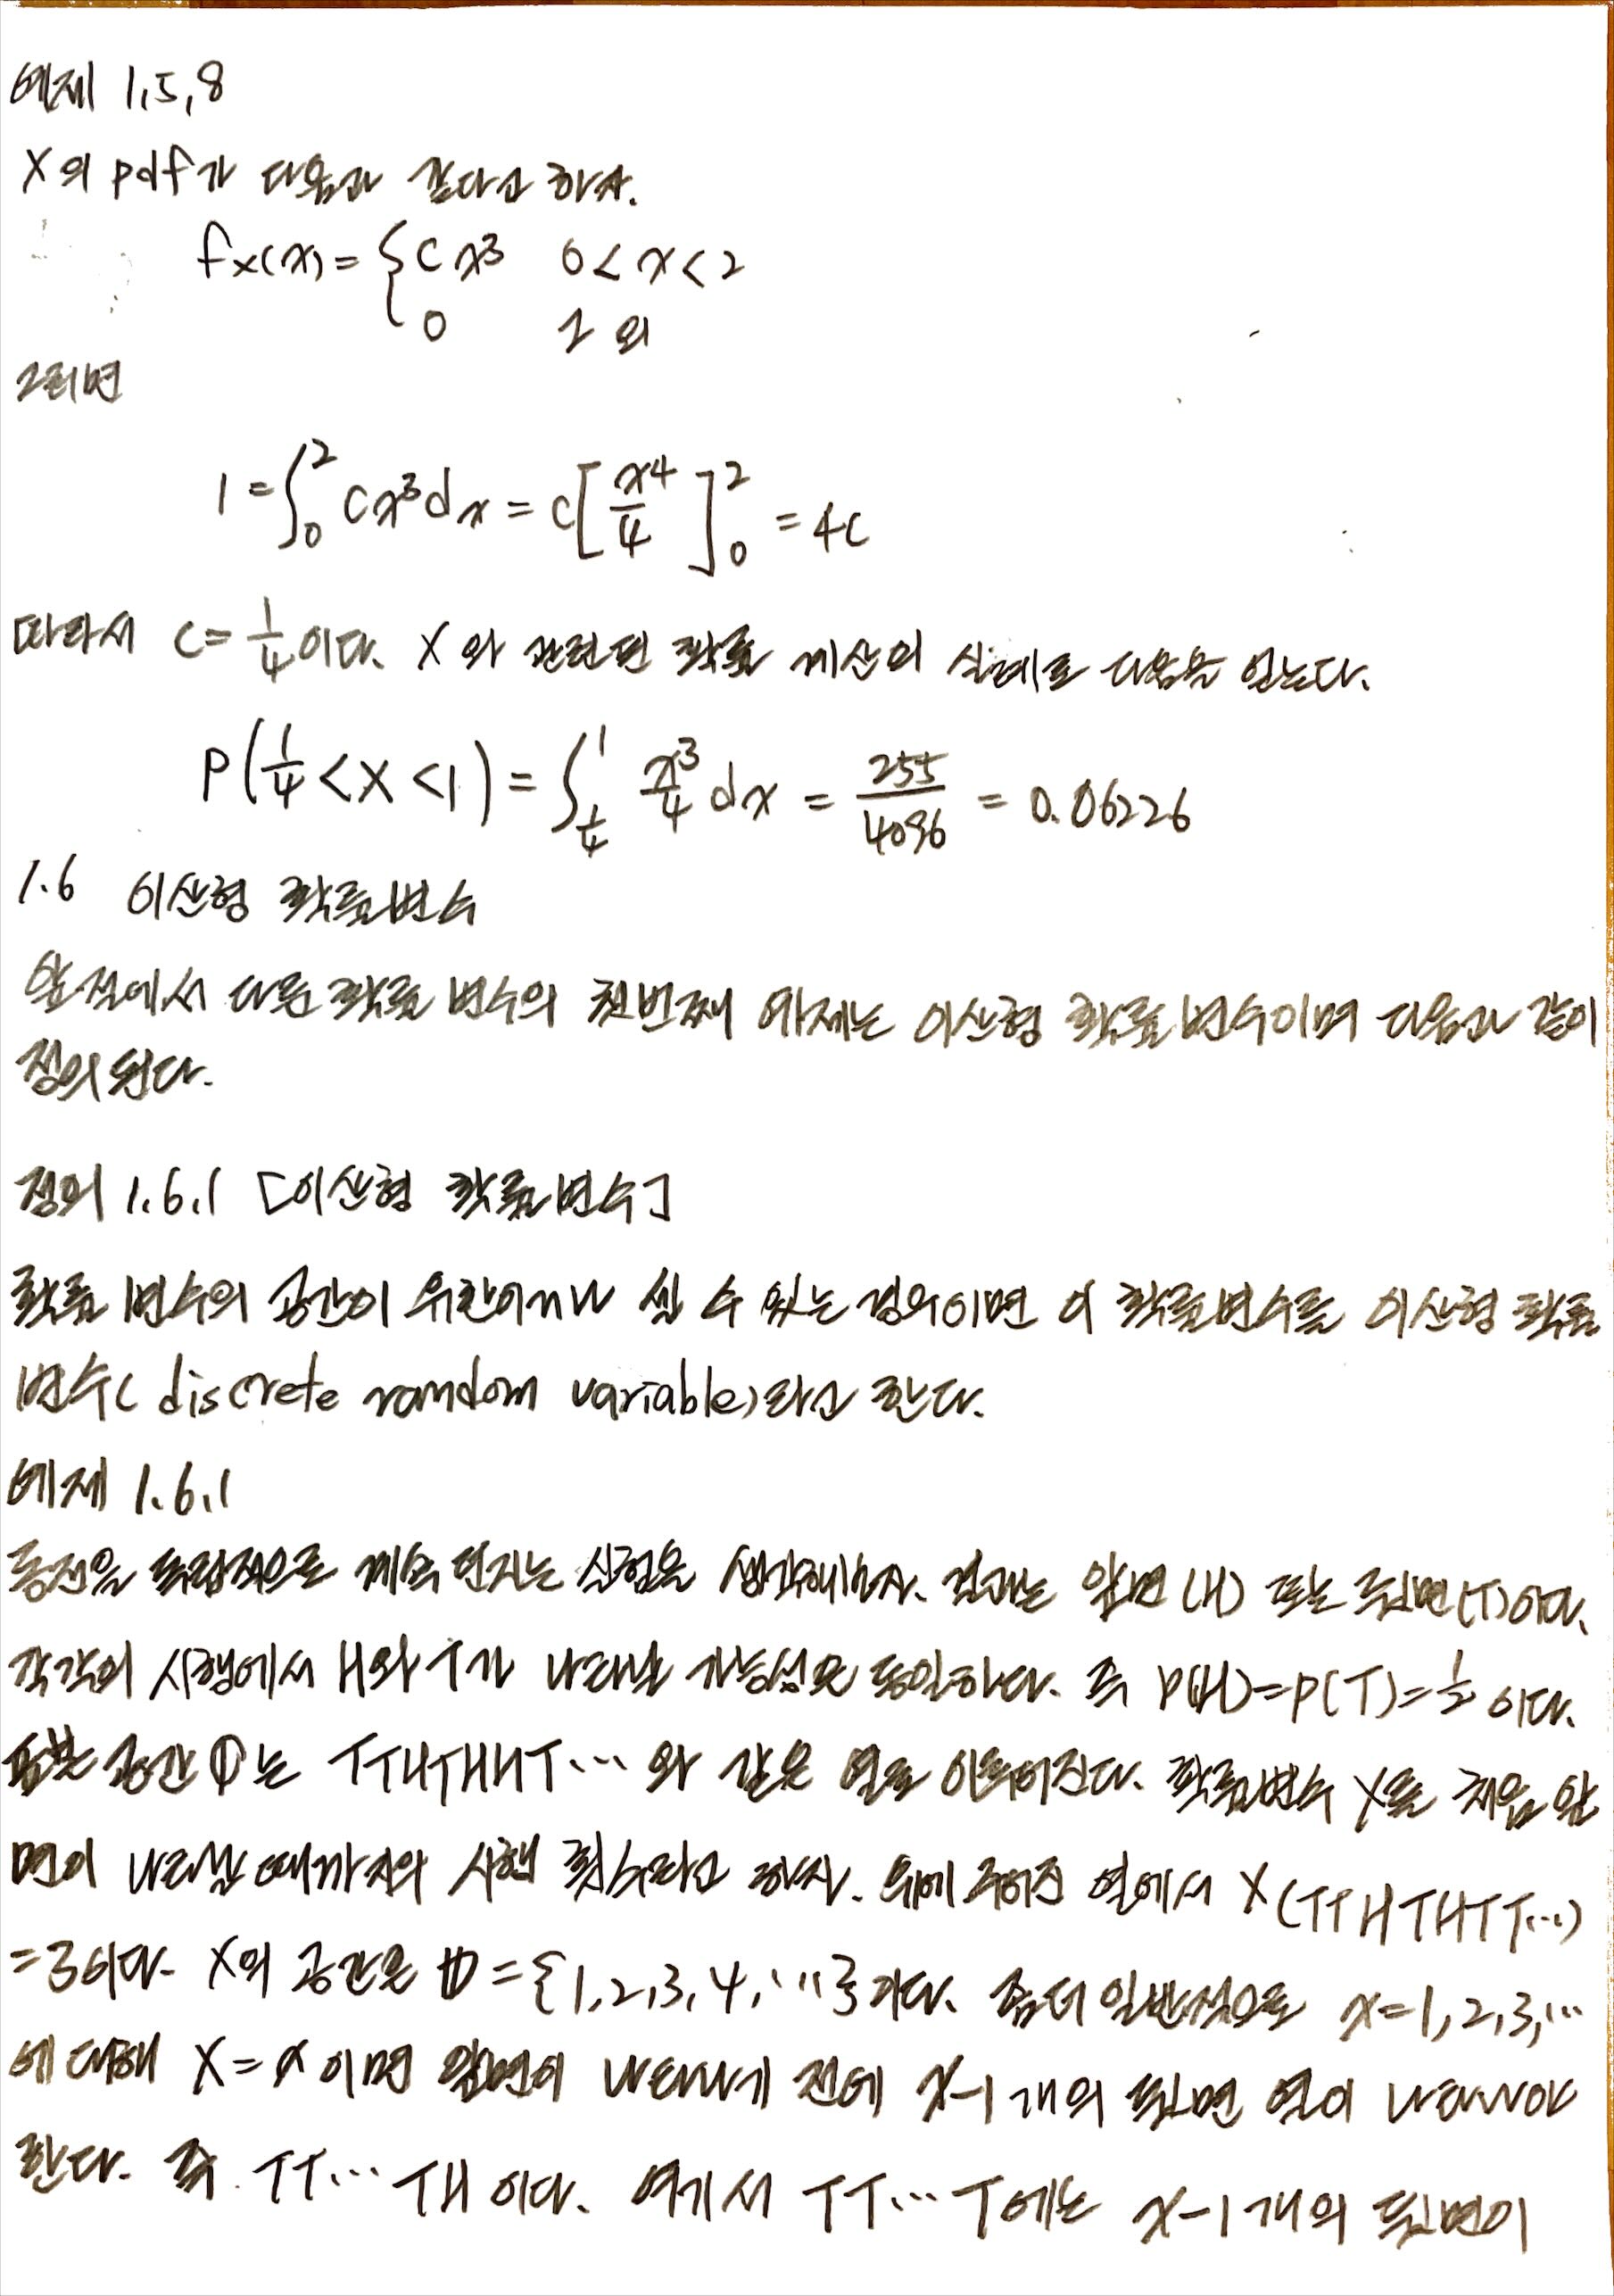 예제 1,5,8
X의 pdf가 다음과 같다고 하자.
fx(x) = { cx³ 0 < x < 2
0 그 외
그러면
1 = ∫₀² cx³dx = c[x⁴/4]₀² = 4c
따라서 c = 1/4이다. X와 관련된 확률 계산의 실례로 다음을 얻는다.
P(1/4 < X < 1) = ∫_{1/4}^{1} x³/4 dx = 255/4096 = 0.06226
1.6 이산형 확률변수
앞절에서 다룬 확률 변수의 첫번째 예제는 이산형 확률변수이며 다음과 같이
정의 된다.
정의 1.6.1 [이산형 확률변수]
확률 변수의 공간이 유한이거나 셀 수 있는 경우이면 이 확률변수를 이산형 확률
변수( discrete random variable)라고 한다.
예제 1.6.1
동전을 독립적으로 계속 던지는 실험을 생각해보자. 결과는 앞면(H) 또는 뒷면(T)이다.
각각의 시행에서 H와 T가 나타날 가능성은 동일하다. 즉 P(H)=P(T)=1/2 이다.
표본 공간 는 TTHTHHT… 와 같은 열로 이루어진다. 확률변수 X를 처음 앞
면이 나타날 때까지의 시행 횟수라고 하자. 위에 주어진 열에서 X(TTHTHTT…)
=3이다. X의 공간은 D = {1,2,3,4,…}이다. 좀더 일반적으로 x=1,2,3,…
에 대해 X=x이면 앞면이 나타나기 전에 x-1개의 뒷면 열이 나타나야
한다. 즉 TT… TH 이다. 여기서 TT…T에는 x-1개의 뒷면이